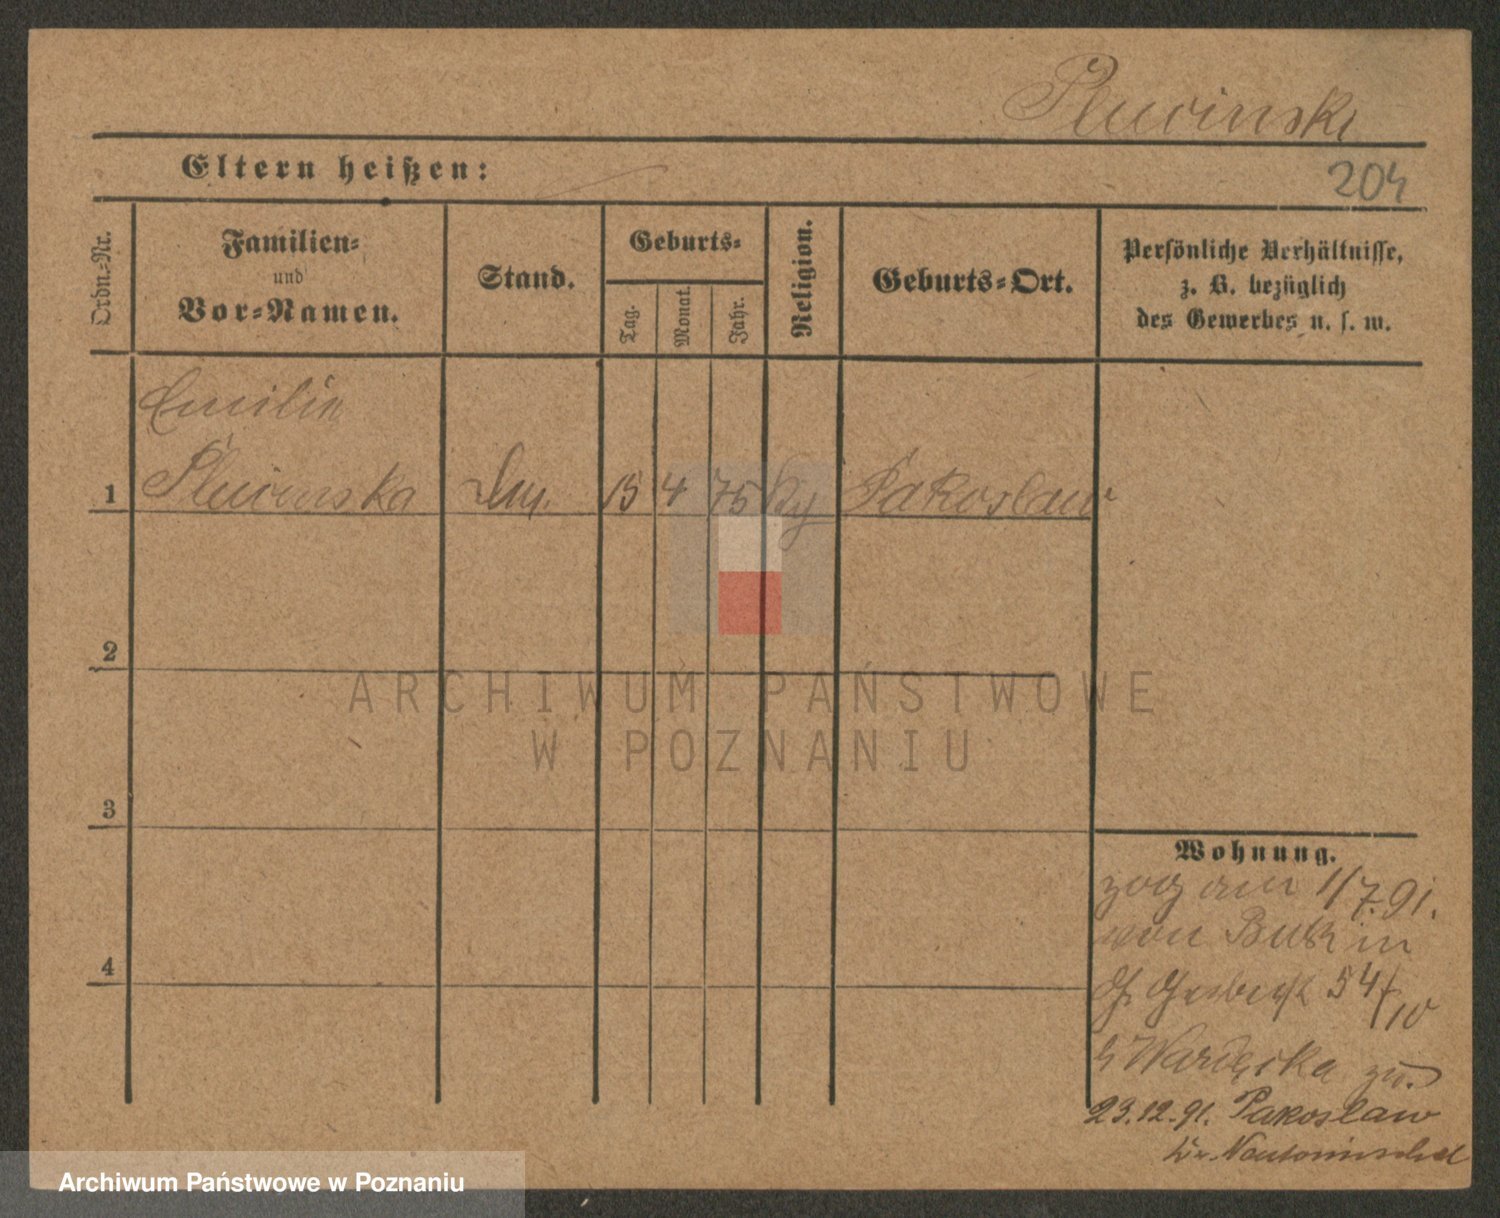 Pluvinski
Eltern heißen:
204
Ordn.-Nr.
Familien-
und
Vor-Namen.
Stand.
Geburts-
Tag.
Monat.
Jahr.
Religion.
Geburts-Ort.
Persönliche Verhältnisse,
z. B. bezüglich
des Gewerbes u. s. w.
Emilie
1 Pluvinska 15 4 75 Pakoslaw
2
3
4
Wohnung.
zog am 1/7.91.
von Buk in
54/10
zu.
23.12.91. Pakoslaw
ARCHIWUM PAŃSTWOWE
W POZNANIU
Archiwum Państwowe w Poznaniu